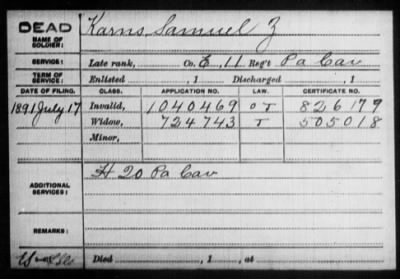 DEAD
NAME OF SOLDIER: Karns, Samuel Z
SERVICE: Late rank, Co. E, 11 Reg't Pa Cav
TERM OF SERVICE: Enlisted , 1 Discharged , 1
DATE OF FILING. CLASS. APPLICATION NO. LAW. CERTIFICATE NO.
1891 July 17 Invalid, 1040469 O T 826179
Widow, 724743 T 505018
Minor,
ADDITIONAL SERVICES: H 20 Pa Cav
REMARKS:
Died , 1 , at